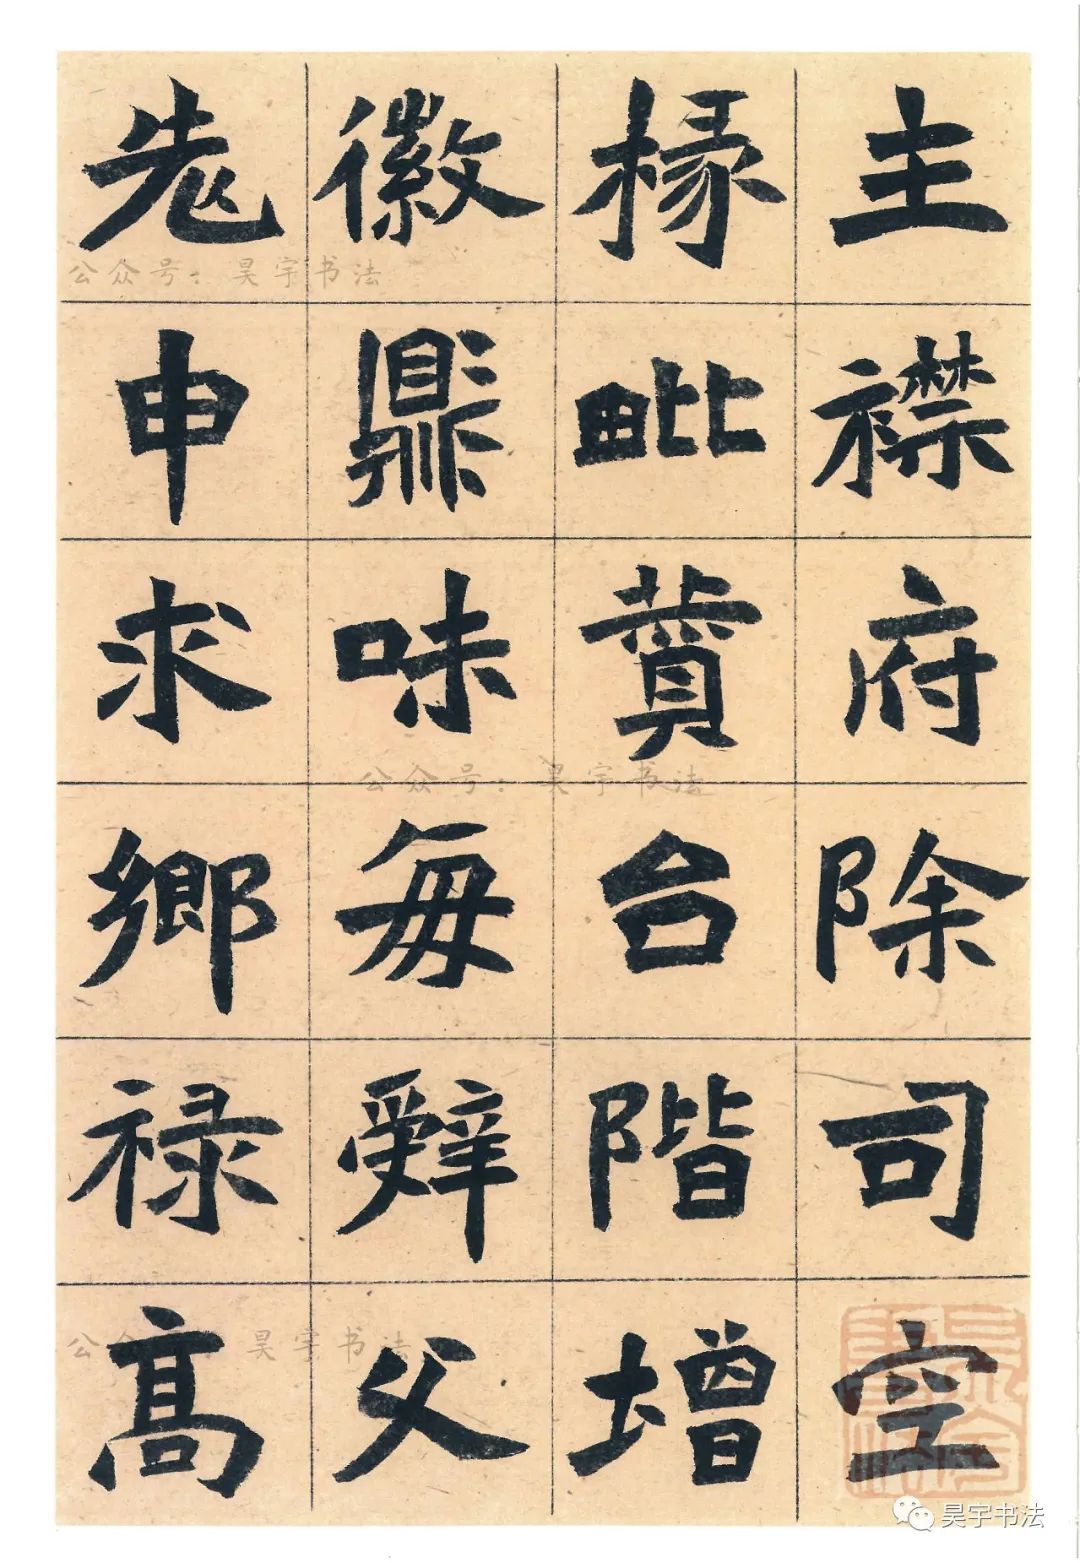 主襟府除司空
掾毗賛台階增
徽鼎味每辭父
先申求鄉禄高
公众号：昊宇书法
公众号：昊宇书法
公众号：昊宇书法
昊宇书法